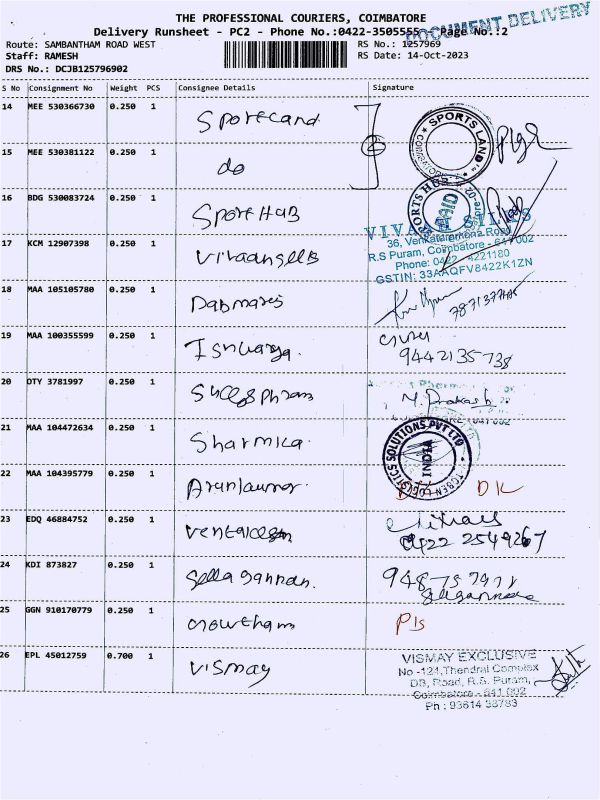 THE PROFESSIONAL COURIERS, COIMBATORE
DOCUMENT DELIVERY
Delivery Runsheet - PC2 - Phone No.:0422-3505555 - Page No.:2
Route: SAMBANTHAM ROAD WEST RS No.: 1257969
Staff: RAMESH RS Date: 14-Oct-2023
DRS No.: DCJB125796902
S No Consignment No Weight PCS Consignee Details Signature
14 MEE 530366730 0.250 1 Sportsland
SPORTS LAND
15 MEE 530381122 0.250 1 do
16 BDG 530083724 0.250 1 Sports HUB
SPORTS HUB
PAID
17 KCM 12907398 0.250 1
36, Venkataramana Road
R.S Puram, Coimbatore - 641 002
Phone: 0422 - 4221180
GSTIN: 33AAQFV8422K1ZN
18 MAA 105105780 0.250 1
19 MAA 100355599 0.250 1 Ishwarya.
9442135738
20 OTY 3781997 0.250 1
M. Prakash
21 MAA 104472634 0.250 1 Sharmila.
LOGISTICS SOLUTIONS PVT LTD
INDIA
22 MAA 104395779 0.250 1 Arunkumar.
23 EDQ 46884752 0.250 1
0422 2549267
24 KDI 873827 0.250 1
25 GGN 910170779 0.250 1 Gowtham
26 EPL 45012759 0.700 1 Vismay
VISMAY EXCLUSIVE
No -124,Thendral Complex
DB, Road, R.S. Puram,
Coimbatore - 641 002
Ph : 93614 38783